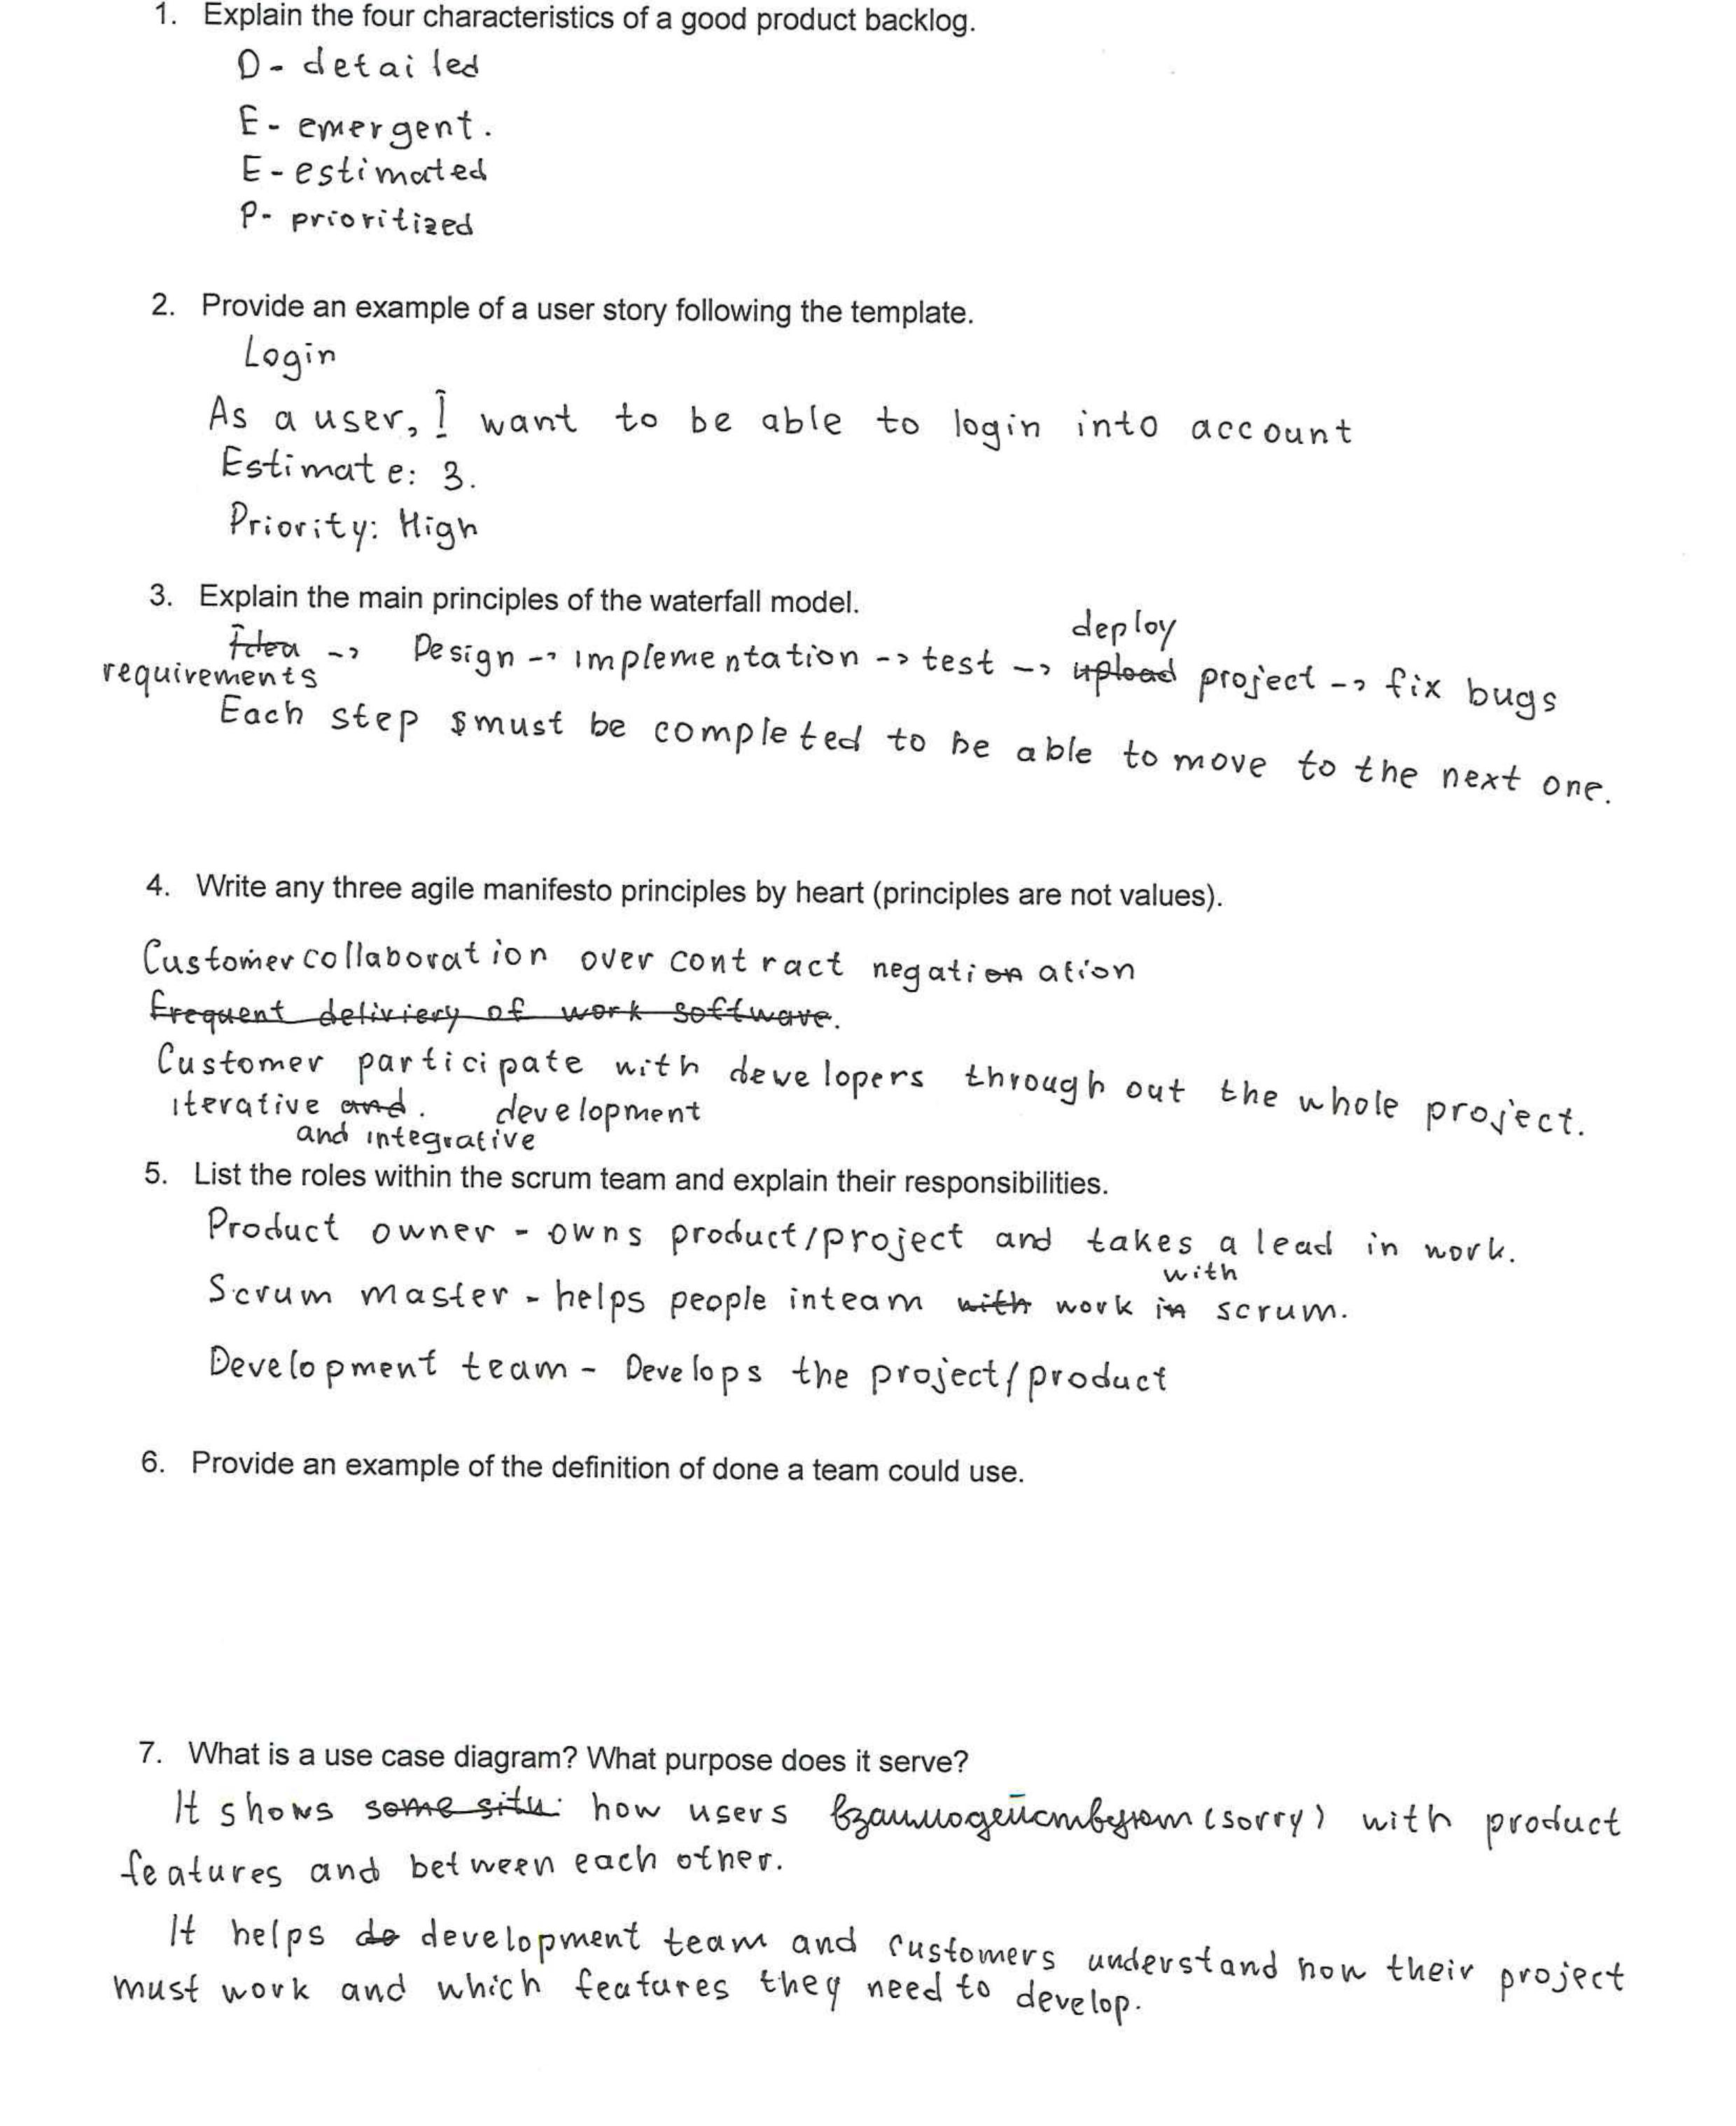 1. Explain the four characteristics of a good product backlog.
D - detailed
E - emergent.
E - estimated
P - prioritized
2. Provide an example of a user story following the template.
Login
As a user, I want to be able to login into account
Estimate: 3.
Priority: High
3. Explain the main principles of the waterfall model.
deploy
Idea -> Design -> implementation -> test -> upload project -> fix bugs
requirements
Each step must be completed to be able to move to the next one.
4. Write any three agile manifesto principles by heart (principles are not values).
Customer collaboration over contract negation ation
frequent deliviery of work software.
Customer participate with developers through out the whole project.
iterative and. development
and integrative
5. List the roles within the scrum team and explain their responsibilities.
Product owner - owns product/project and takes a lead in work.
with
Scrum master - helps people in team with work in scrum.
Development team - Develops the project/product
6. Provide an example of the definition of done a team could use.
7. What is a use case diagram? What purpose does it serve?
It shows some situ. how users взаимодействуют (sorry) with product
features and between each other.
It helps do development team and customers understand how their project
must work and which features they need to develop.